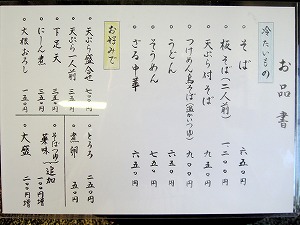 お品書
冷たいもの
・そば 六五〇円
・板そば(二人前) 一三〇〇円
・天ぷら付そば 九五〇円
・つけめん鳥そば(温かいつゆ) 九〇〇円
・うどん 六五〇円
・そうめん 六五〇円
・ざる中華 六五〇円
お好みで
・天ぷら盛合せ 七〇〇円
・天ぷら一人前 三五〇円
・下足天 三五〇円
・にしん煮 三五〇円
・大根おろし 一五〇円
・とろろ 二五〇円
・煮卵 五〇円
・そばつゆ
薬味 追加 一〇〇円増
・大盛 二〇〇円増